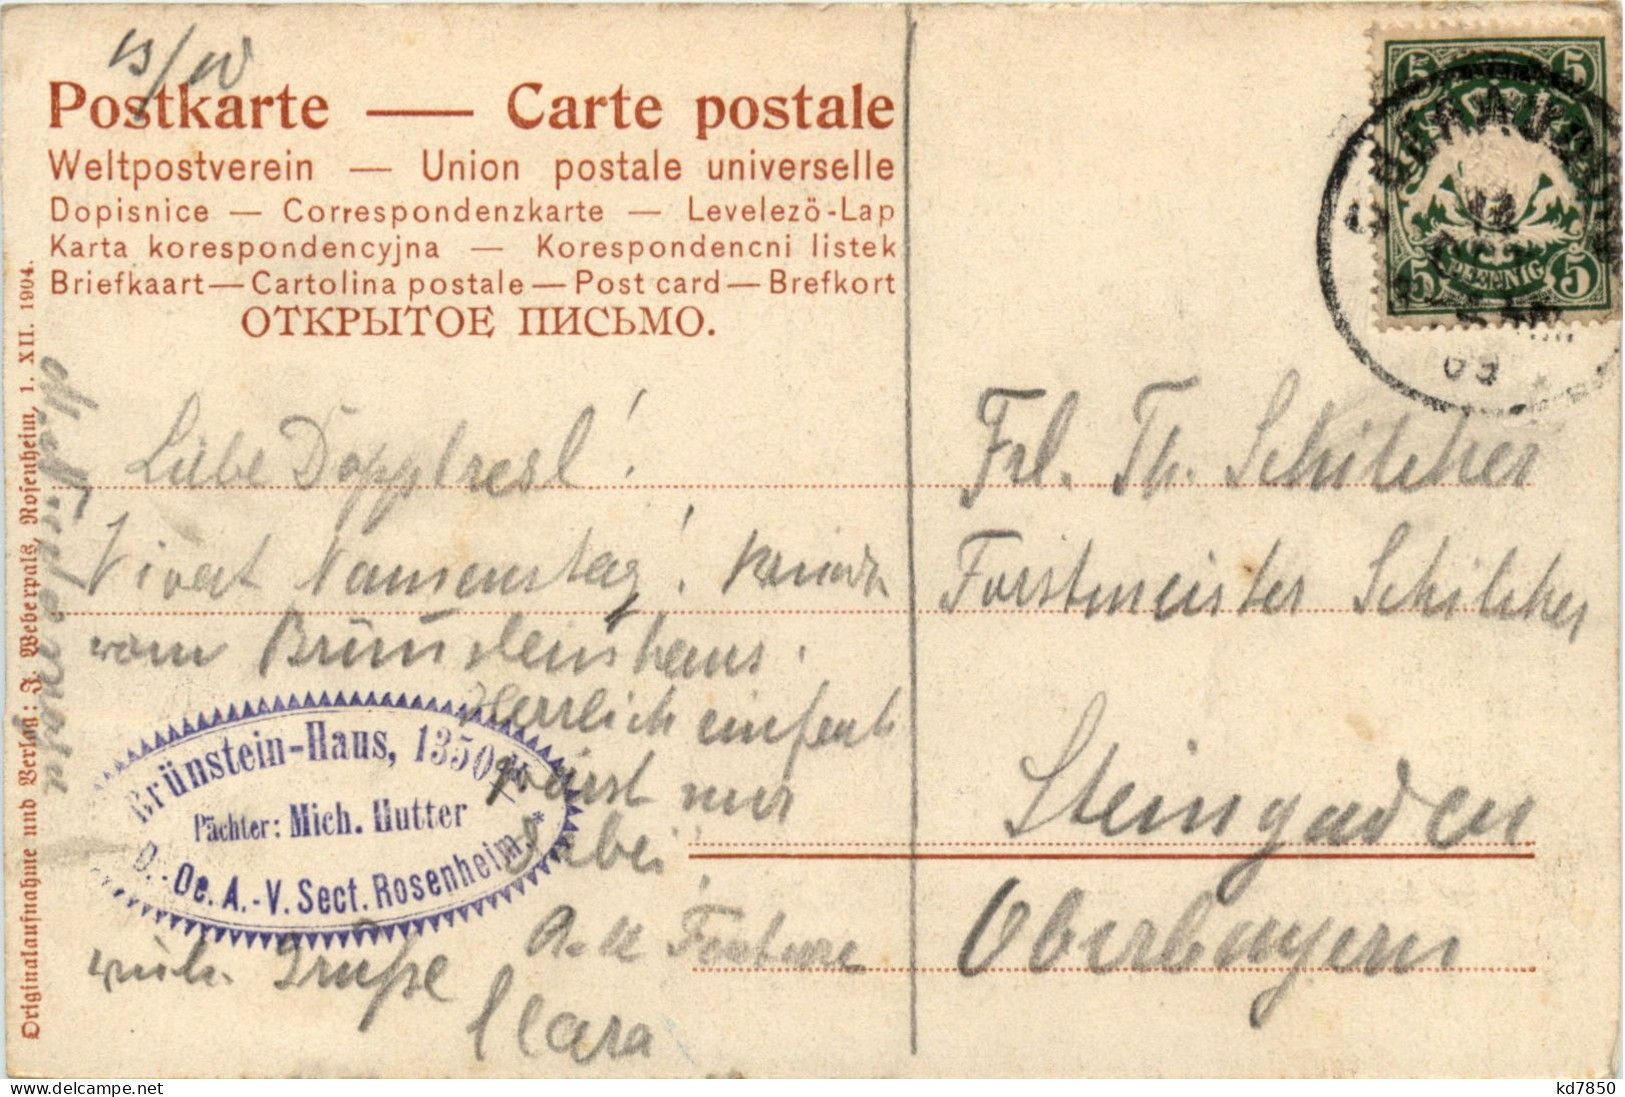 13/10
Postkarte — Carte postale
Weltpostverein — Union postale universelle
Dopisnice — Correspondenzkarte — Levelezö-Lap
Karta korespondencyjna — Korespondencni listek
Briefkaart — Cartolina postale — Post card — Brefkort
ОТКРЫТОЕ ПИСЬМО.
Originalaufnahme und Verlag: J. Weberpals, Rosenheim, 1. XII. 1904.
5 5
PFENNIG
5 5
Liebe Dopplresl!
Vivat Namenstag!
vom Brünsteinhaus.
Herrlich einfach
wärst nur
Dabei!
Grüße
Clara
Brünstein-Haus, 1350
Pächter: Mich. Hutter
D.-Oe. A.-V. Sect. Rosenheim. *
Frl. Th. Schilcher
Forstmeister Schilcher
Steingaden
Oberbayern
kd7850